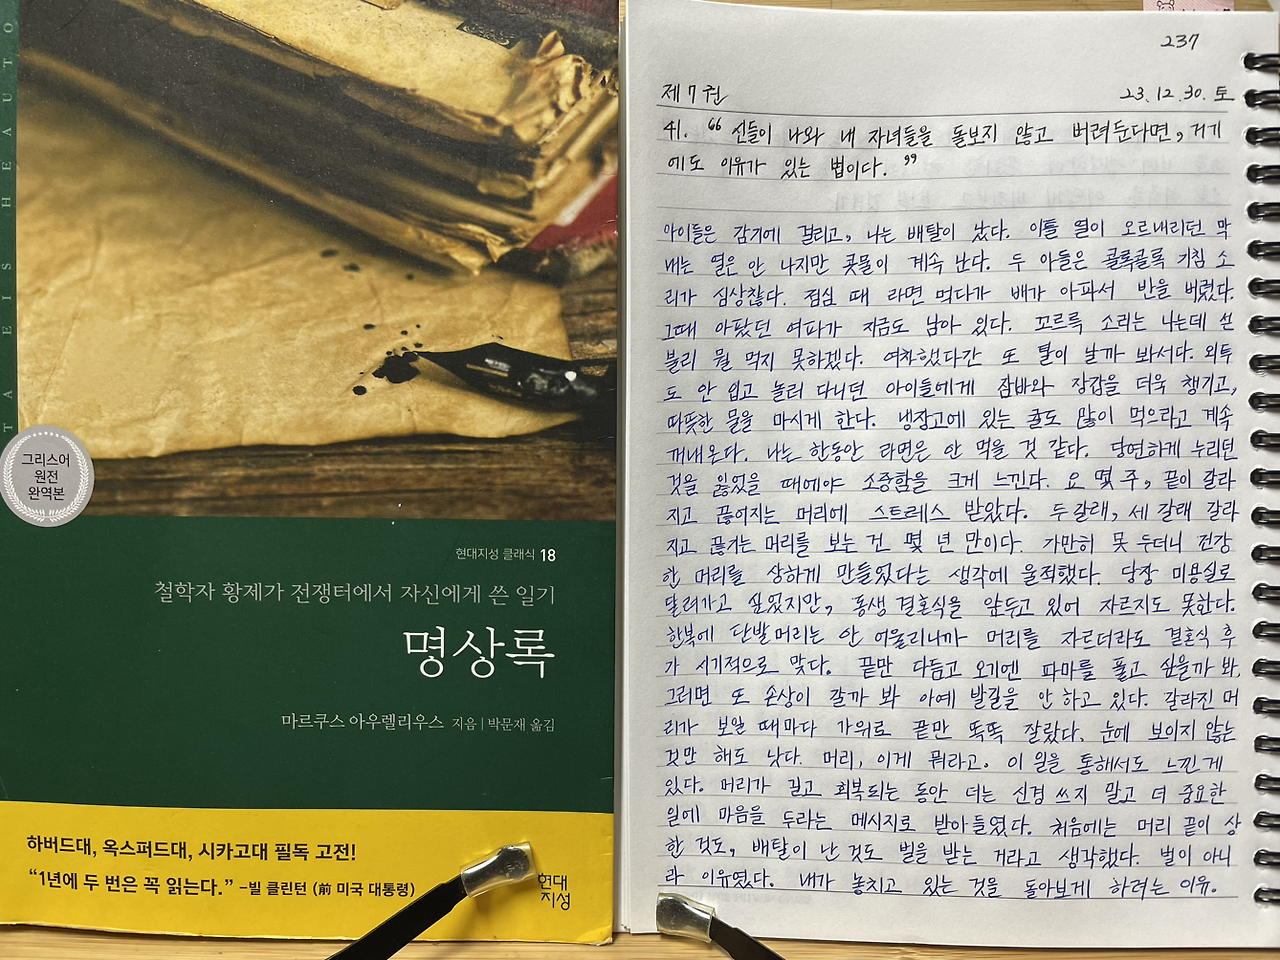 TAEISHEAUTO
그리스어
원전
완역본
현대지성 클래식 18
철학자 황제가 전쟁터에서 자신에게 쓴 일기
명상록
마르쿠스 아우렐리우스 지음 | 박문재 옮김
하버드대, 옥스퍼드대, 시카고대 필독 고전!
“1년에 두 번은 꼭 읽는다.” –빌 클린턴 (前 미국 대통령)
현대
지성
237
제7권 23.12.30.토
41. “신들이 나와 내 자녀들을 돌보지 않고 버려둔다면, 거기
에도 이유가 있는 법이다.”
아이들은 감기에 걸리고, 나는 배탈이 났다. 이틀 열이 오르내리던 막
내는 열은 안 나지만 콧물이 계속 난다. 두 아들은 콜록콜록 기침 소
리가 심상찮다. 점심 때 라면 먹다가 배가 아파서 반을 버렸다.
그때 아팠던 여파가 지금도 남아 있다. 꼬르륵 소리는 나는데 섣
불리 뭘 먹지 못하겠다. 여차했다간 또 탈이 날까 봐서다. 외투
도 안 입고 놀러 다니던 아이들에게 잠바와 장갑을 더욱 챙기고,
따뜻한 물을 마시게 한다. 냉장고에 있는 귤도 많이 먹으라고 계속
꺼내온다. 나는 한동안 라면은 안 먹을 것 같다. 당연하게 누리던
것을 잃었을 때에야 소중함을 크게 느낀다. 요 몇 주, 끝이 갈라
지고 끊어지는 머리에 스트레스 받았다. 두 갈래, 세 갈래 갈라
지고 끊기는 머리를 보는 건 몇 년 만이다. 가만히 못 두더니 건강
한 머리를 상하게 만들었다는 생각에 울적했다. 당장 미용실로
달려가고 싶었지만, 동생 결혼식을 앞두고 있어 자르지도 못한다.
한복에 단발머리는 안 어울리니까 머리를 자르더라도 결혼식 후
가 시기적으로 맞다. 끝만 다듬고 오기엔 파마를 풀고 싶을까 봐,
그러면 또 손상이 갈까 봐 아예 발길을 안 하고 있다. 갈라진 머
리가 보일 때마다 가위로 끝만 똑똑 잘랐다. 눈에 보이지 않는
것만 해도 낫다. 머리, 이게 뭐라고. 이 일을 통해서도 느낀 게
있다. 머리가 길고 회복되는 동안 더는 신경 쓰지 말고 더 중요한
일에 마음을 두라는 메시지로 받아들였다. 처음에는 머리 끝이 상
한 것도, 배탈이 난 것도 벌을 받는 거라고 생각했다. 벌이 아니
라 이유였다. 내가 놓치고 있는 것을 돌아보게 하려는 이유.